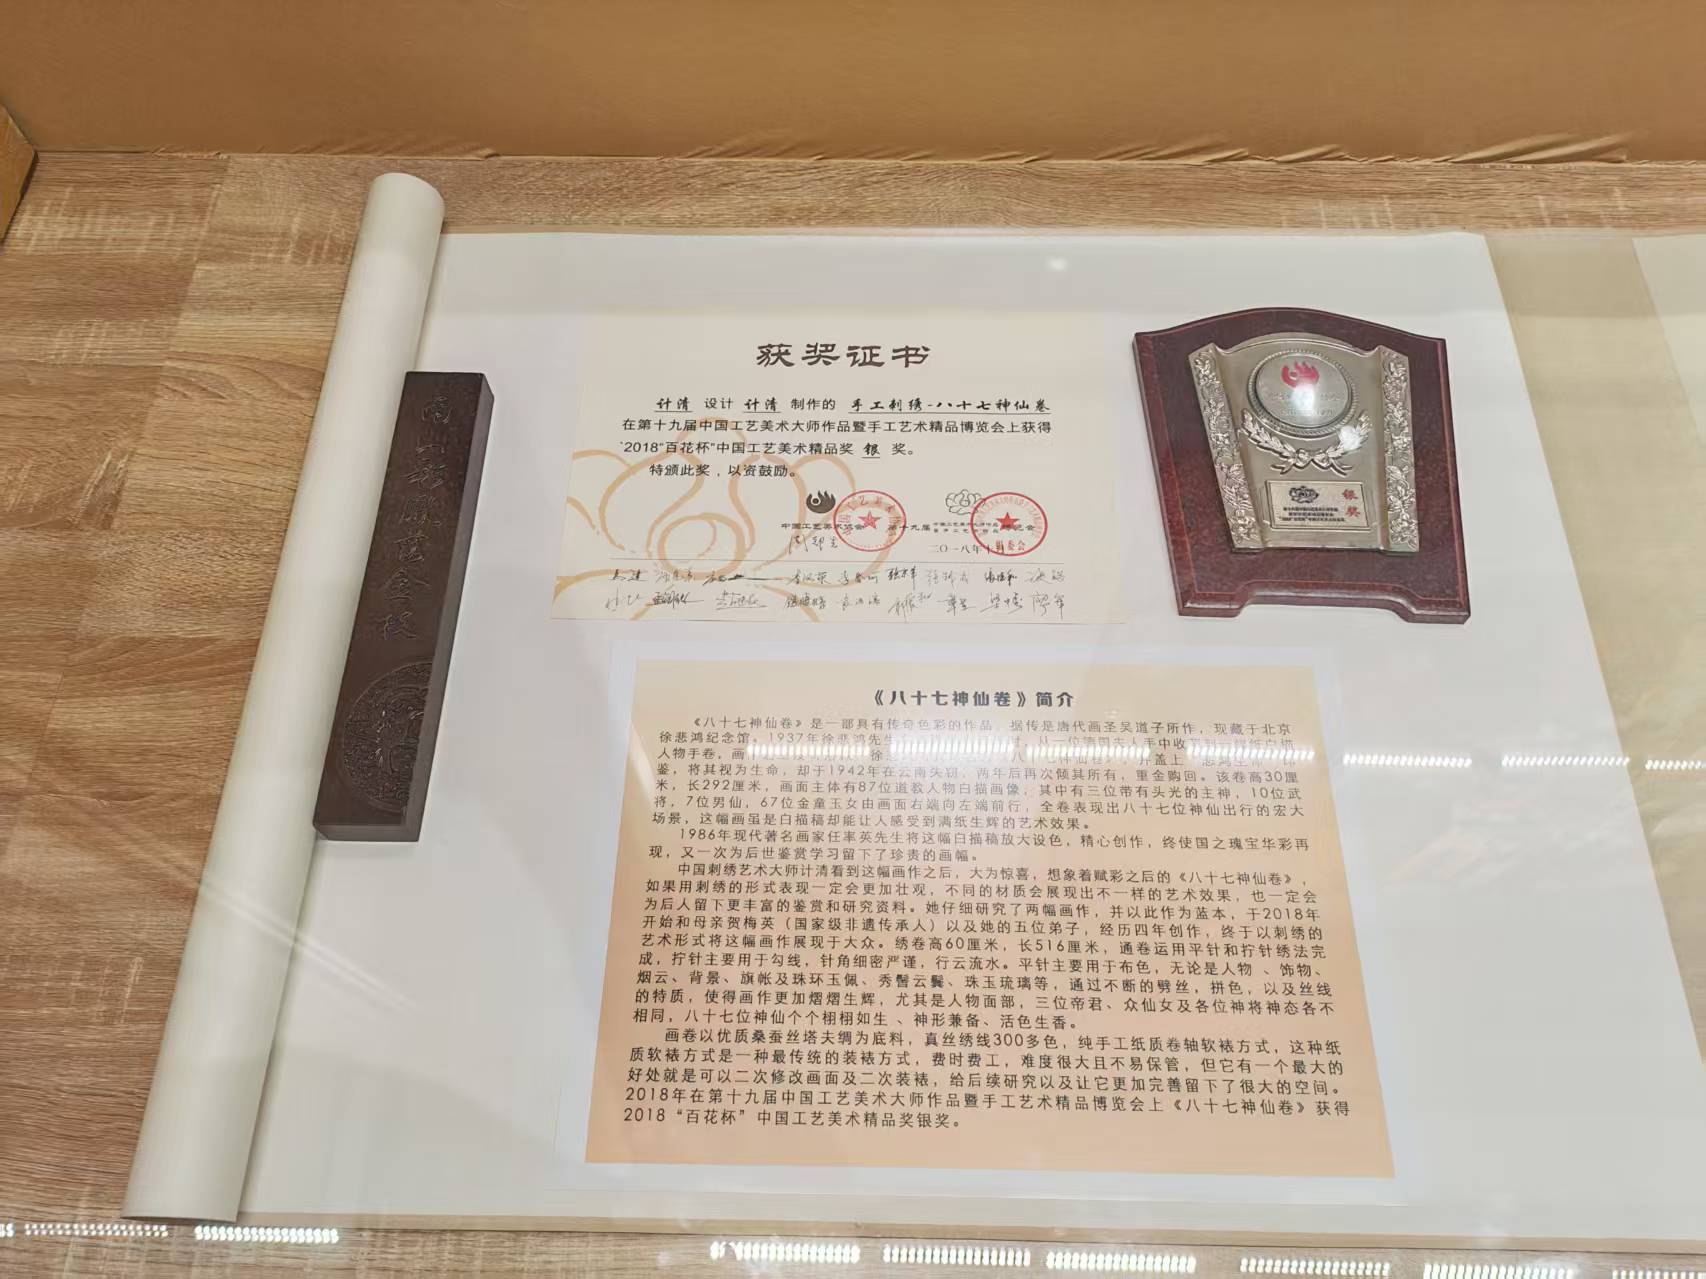 获奖证书
计清 设计 计清 制作的 手工刺绣-八十七神仙卷
在第十九届中国工艺美术大师作品暨手工艺术精品博览会上获得
"2018"百花杯"中国工艺美术精品奖 银 奖。
特颁此奖，以资鼓励。
中国工艺美术协会 第十九届 中国工艺美术大师作品暨手工艺术精品 博览会
二〇一八年十月
银奖
《八十七神仙卷》简介
《八十七神仙卷》是一部具有传奇色彩的作品，据传是唐代画圣吴道子所作，现藏于北京
徐悲鸿纪念馆。1937年徐悲鸿先生 从一位德国夫人手中收
人物手卷，画
鉴，将其视为生命，却于1942年在云南失窃，两年后再次倾其所有，重金购回。该卷高30厘
米，长292厘米，画面主体有87位道教人物白描画像，其中有三位带有头光的主神，10位武
将，7位男仙，67位金童玉女由画面右端向左端前行，全卷表现出八十七位神仙出行的宏大
场景，这幅画虽是白描稿却能让人感受到满纸生辉的艺术效果。
1986年现代著名画家任率英先生将这幅白描稿放大设色，精心创作，终使国之瑰宝华彩再
现，又一次为后世鉴赏学习留下了珍贵的画幅。
中国刺绣艺术大师计清看到这幅画作之后，大为惊喜，想象着赋彩之后的《八十七神仙卷》，
如果用刺绣的形式表现一定会更加壮观，不同的材质会展现出不一样的艺术效果，也一定会
为后人留下更丰富的鉴赏和研究资料。她仔细研究了两幅画作，并以此作为蓝本，于2018年
开始和母亲贺梅英（国家级非遗传承人）以及她的五位弟子，经历四年创作，终于以刺绣的
艺术形式将这幅画作展现于大众。绣卷高60厘米，长516厘米，通卷运用平针和拧针绣法完
成，拧针主要用于勾线，针角细密严谨，行云流水。平针主要用于布色，无论是人物 、饰物、
烟云、背景、旗帐及珠环玉佩、秀髻云鬓、珠玉琉璃等，通过不断的劈丝，拼色，以及丝线
的特质，使得画作更加熠熠生辉，尤其是人物面部，三位帝君、众仙女及各位神将神态各不
相同，八十七位神仙个个栩栩如生 、神形兼备、活色生香。
画卷以优质桑蚕丝塔夫绸为底料，真丝绣线300多色，纯手工纸质卷轴软裱方式，这种纸
质软裱方式是一种最传统的装裱方式，费时费工，难度很大且不易保管，但它有一个最大的
好处就是可以二次修改画面及二次装裱，给后续研究以及让它更加完善留下了很大的空间。
2018年在第十九届中国工艺美术大师作品暨手工艺术精品博览会上《八十七神仙卷》获得
2018"百花杯"中国工艺美术精品奖银奖。